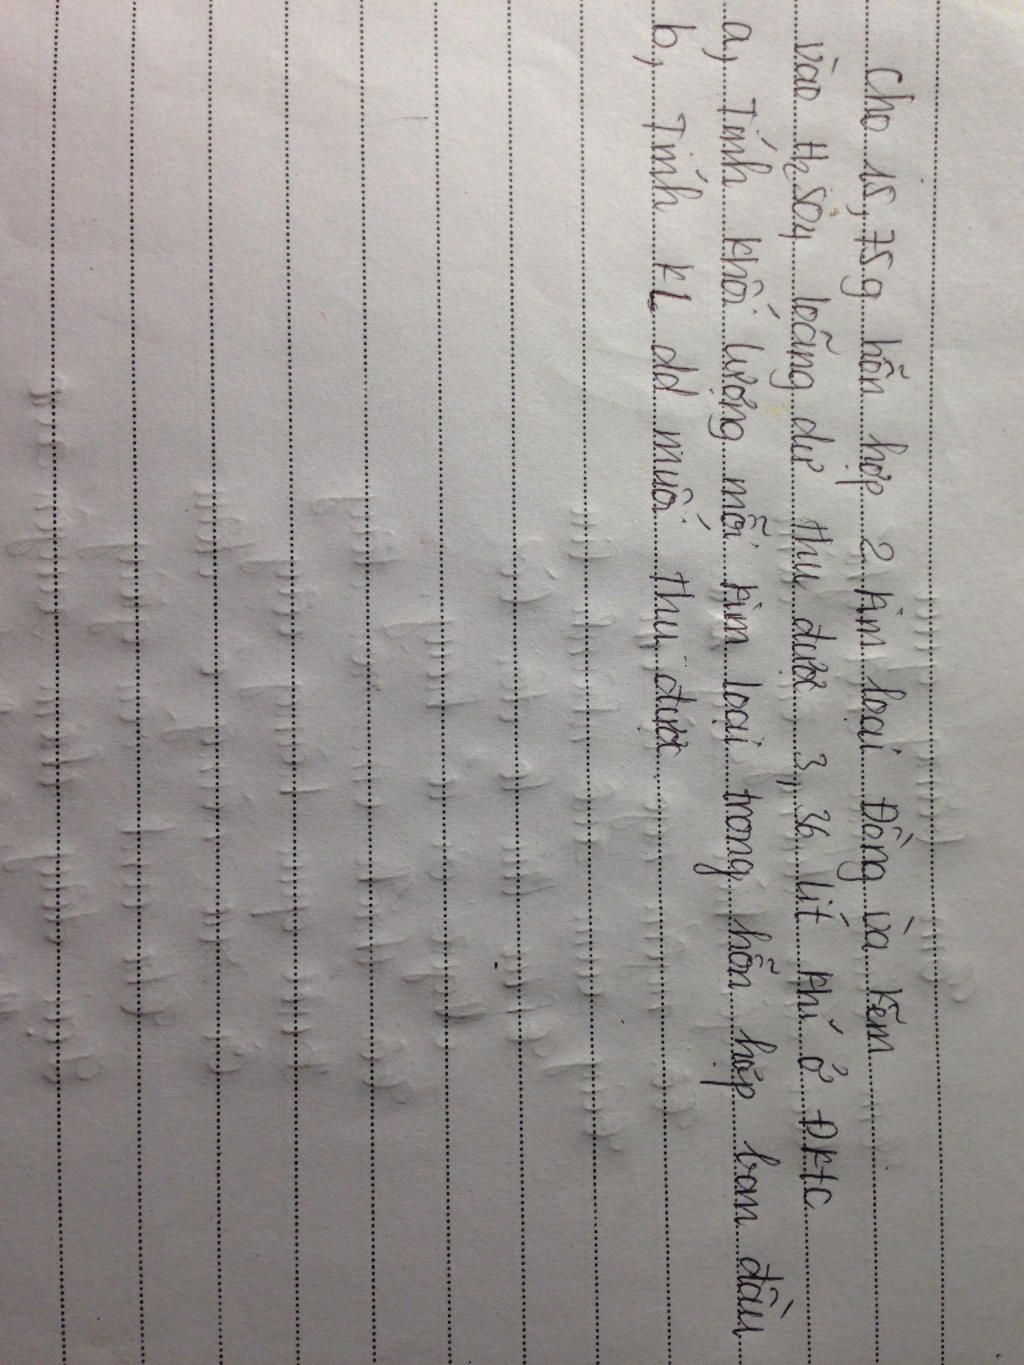 Cho 15,75g hỗn hợp 2 kim loại Đồng và kẽm
vào H2SO4 loãng dư thu được 3,36 lít khí ở ĐKtC
a, Tính khối lượng mỗi kim loại trong hỗn hợp ban đầu
b, Tính kL dd muối thu được